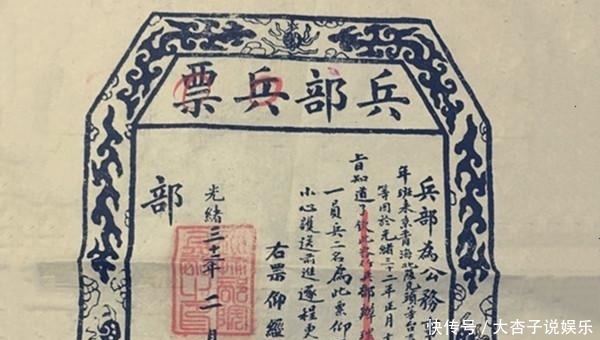 兵部兵票
兵部為公務
年班來京青海北頭等台
等因於光緒三十二年正月十
旨知道了欽此咨行兵部辦理
一員兵二名為此票仰
小心護送前進逐程更
右票仰經
光緒三十二年二月
部
快传号/大杏子说娱乐